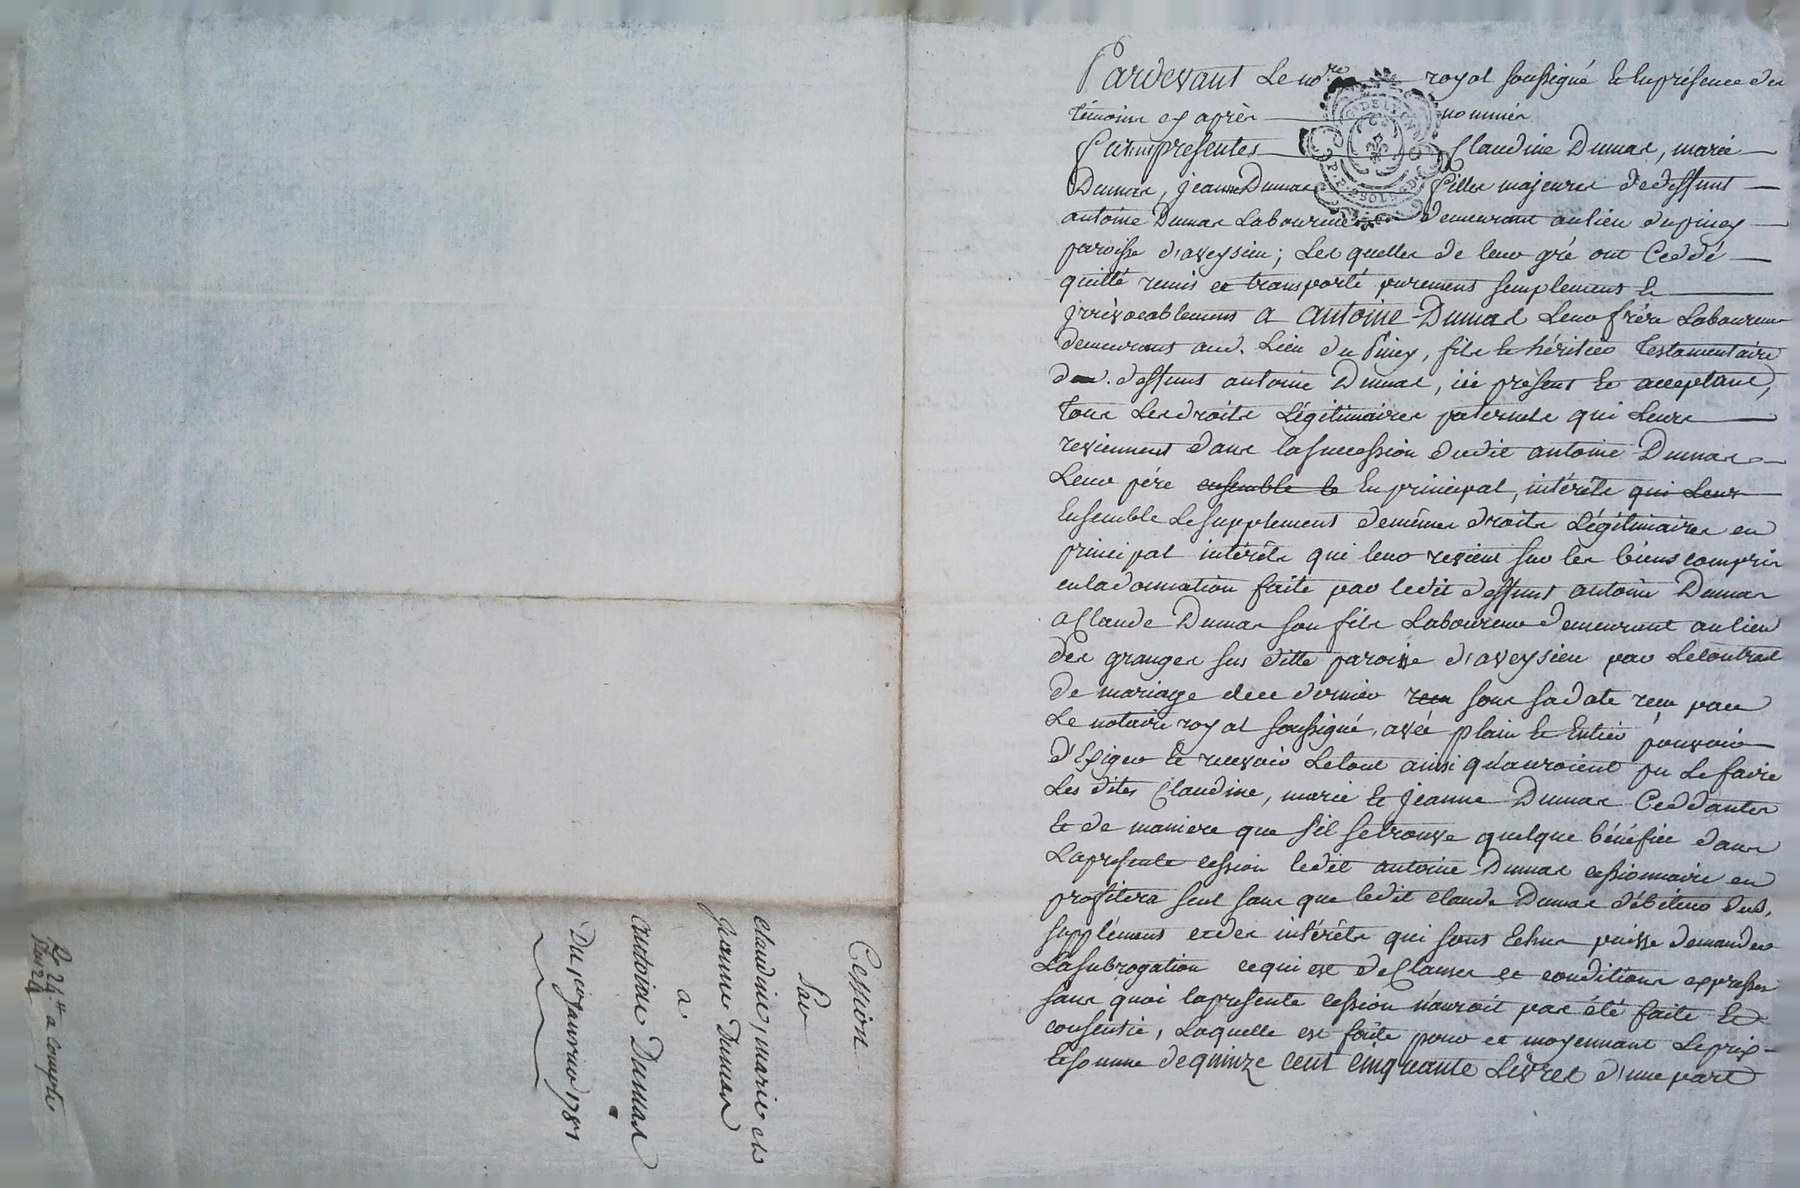 Pardevant Le no.re royal soussigné & En présence des
témoins cy après nommés
furent presentes Claudine Dumas, marie
Dumas, jeanne Dumas filles majeures de deffunt
antoine Dumas Laboureur demeurant au lieu du piney
paroisse d'aveysieu; Lesquelles de leur gré ont Ceddé
quitté remis et transporté purement simplement &
jrrévocablement a antoine Dumas Leur frère Laboureur
demeurant aud. Lieu du Piney, fils & héritier Testamentaire
dud. deffunt antoine Dumas, ici présent & acceptant,
tous Les droits Légitimaires paternels qui Leurs
reviennent dans la succession dudit antoine Dumas
Leur père ensemble le En principal, intérêts qui Leur
Ensemble Le supplement de mêmes droits Légitimaires en
principal intérêts qui leur revient sur les biens compris
en la donnation faite par ledit deffunt antoine Dumas
a Claude Dumas son fils Laboureur demeurant au lieu
des granges sus ditte paroisse d'aveysieu par Le Contrat
de mariage de ce dernier recu sous sa date recu par
Le notaire royal soussigné, avec plain & Entier pouvoir
d'Exiger & recevoir Le tout ainsi qu'auroient pu Le faire
Les dites Claudine, marie & jeanne Dumas Ceddantes
& de maniere que s'il se trouve quelque bénéfice dans
La présente cession ledit antoine Dumas cessionnaire en
profitera seul sans que ledit claude Dumas débiteur dud.
supplément et des intérêts qui sont Echus puisse demander
La subrogation ce qui est de Clauses et conditions expresses
sans quoi la présente cession n'auroit pas été faite &
consentie, Laquelle est faite pour et moyennant Le prix
& somme de quinze cent cinquante Livres d'une part
Cession
Par
claudine, marie et
jeanne Dumas
a
antoine Dumas
Du janvier 1781
24 a compte